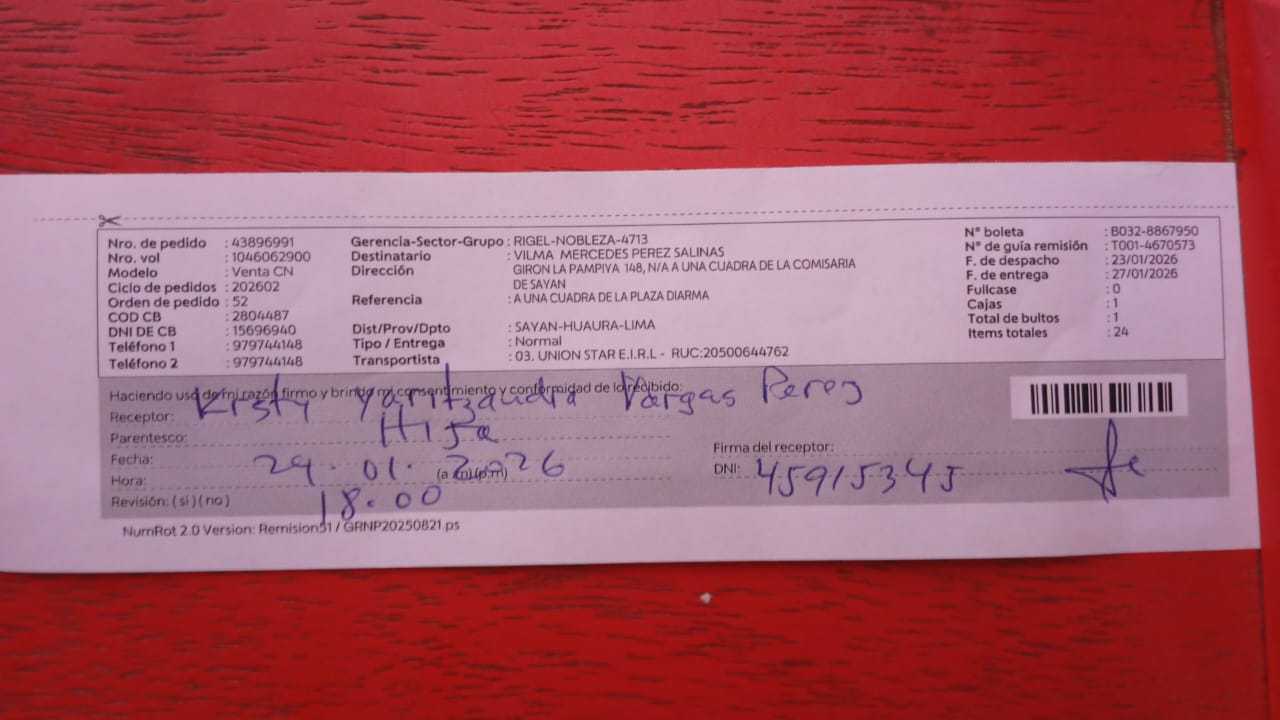 Nro. de pedido : 43896991
Nro. vol : 1046062900
Modelo : Venta CN
Ciclo de pedidos : 202602
Orden de pedido : 52
COD CB : 2804487
DNI DE CB : 15696940
Teléfono 1 : 979744148
Teléfono 2 : 979744148
Gerencia-Sector-Grupo : RIGEL-NOBLEZA-4713
Destinatario : VILMA MERCEDES PEREZ SALINAS
Dirección GIRON LA PAMPIYA 148, N/A A UNA CUADRA DE LA COMISARIA
DE SAYAN
Referencia : A UNA CUADRA DE LA PLAZA DIARMA
Dist/Prov/Dpto : SAYAN-HUAURA-LIMA
Tipo / Entrega : Normal
Transportista : 03. UNION STAR E.I.R.L - RUC:20500644762
N° boleta : B032-8867950
N° de guía remisión : T001-4670573
F. de despacho : 23/01/2026
F. de entrega : 27/01/2026
Fullcase : 0
Cajas : 1
Total de bultos : 1
Items totales : 24
Haciendo uso de mi razón firmo y brindo mi consentimiento y conformidad de lo recibido:
Receptor: Kristy Vargas Perez
Parentesco: Hija
Fecha: 29.01.2026
Hora: 18.00 (a.m)(p.m)
Revisión: (si)(no)
Firma del receptor:
DNI: 45915345
NumRot 2.0 Version: Remision51 / GRNP20250821.ps